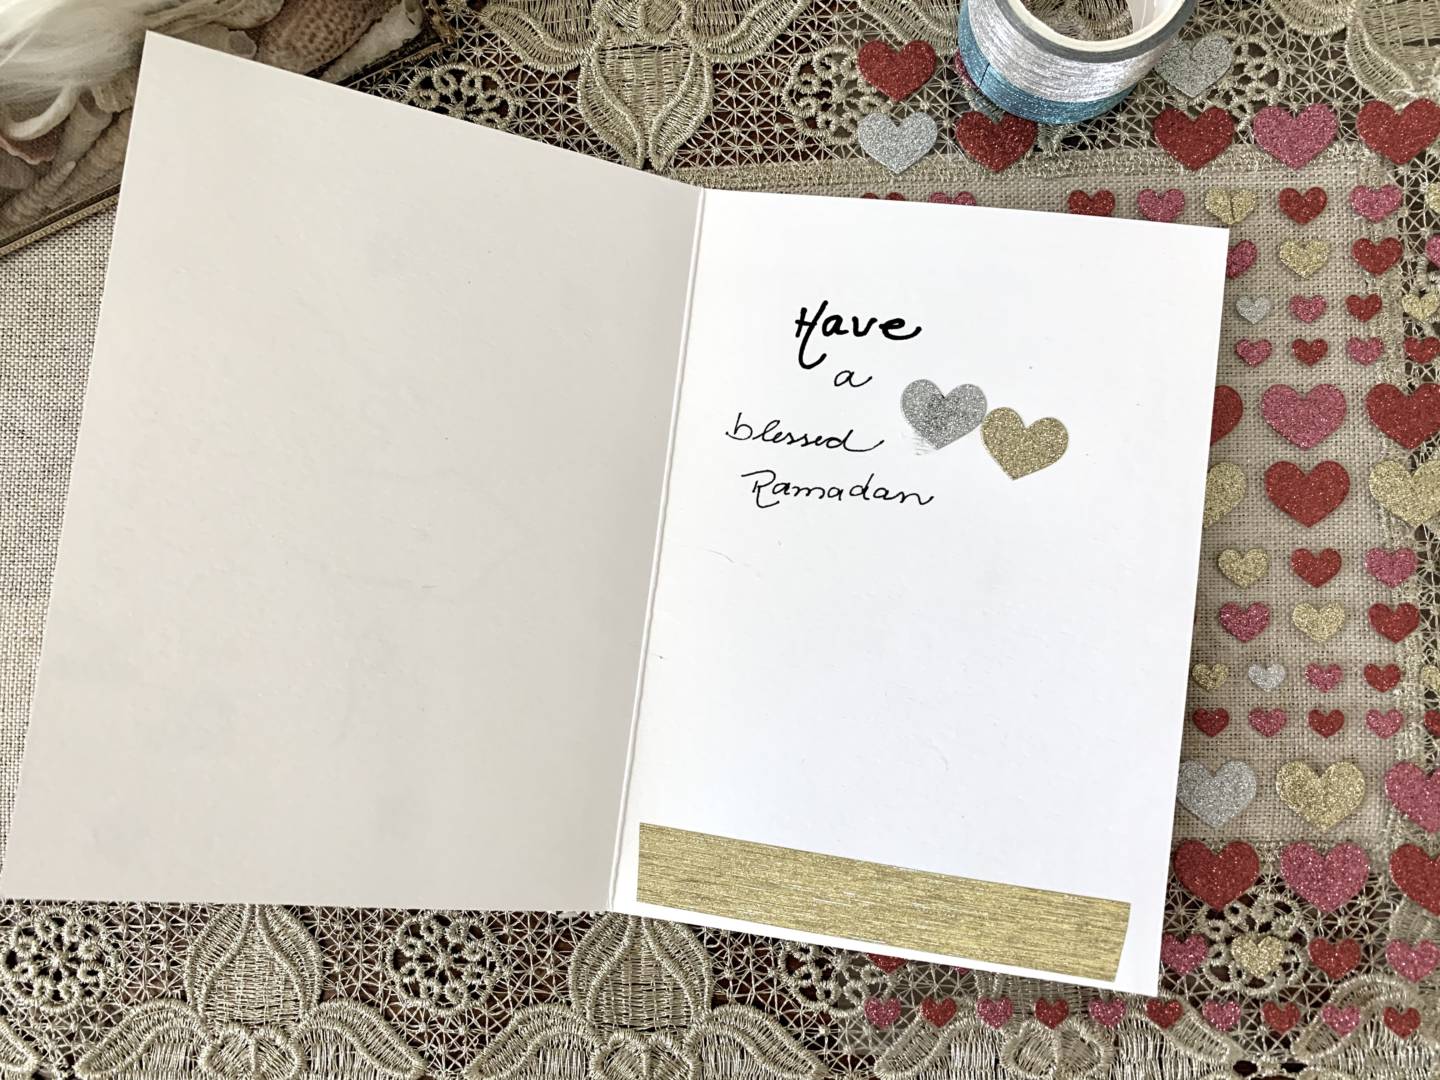 Have
a
blessed
Ramadan